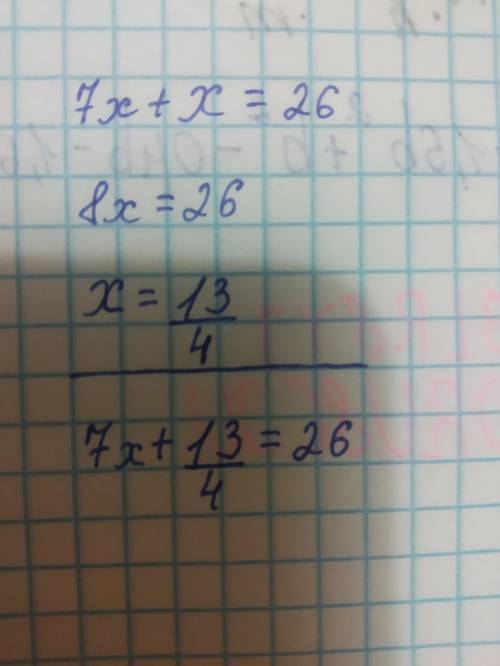 7x + x = 26
8x = 26
x = 13/4
7x + 13/4 = 26